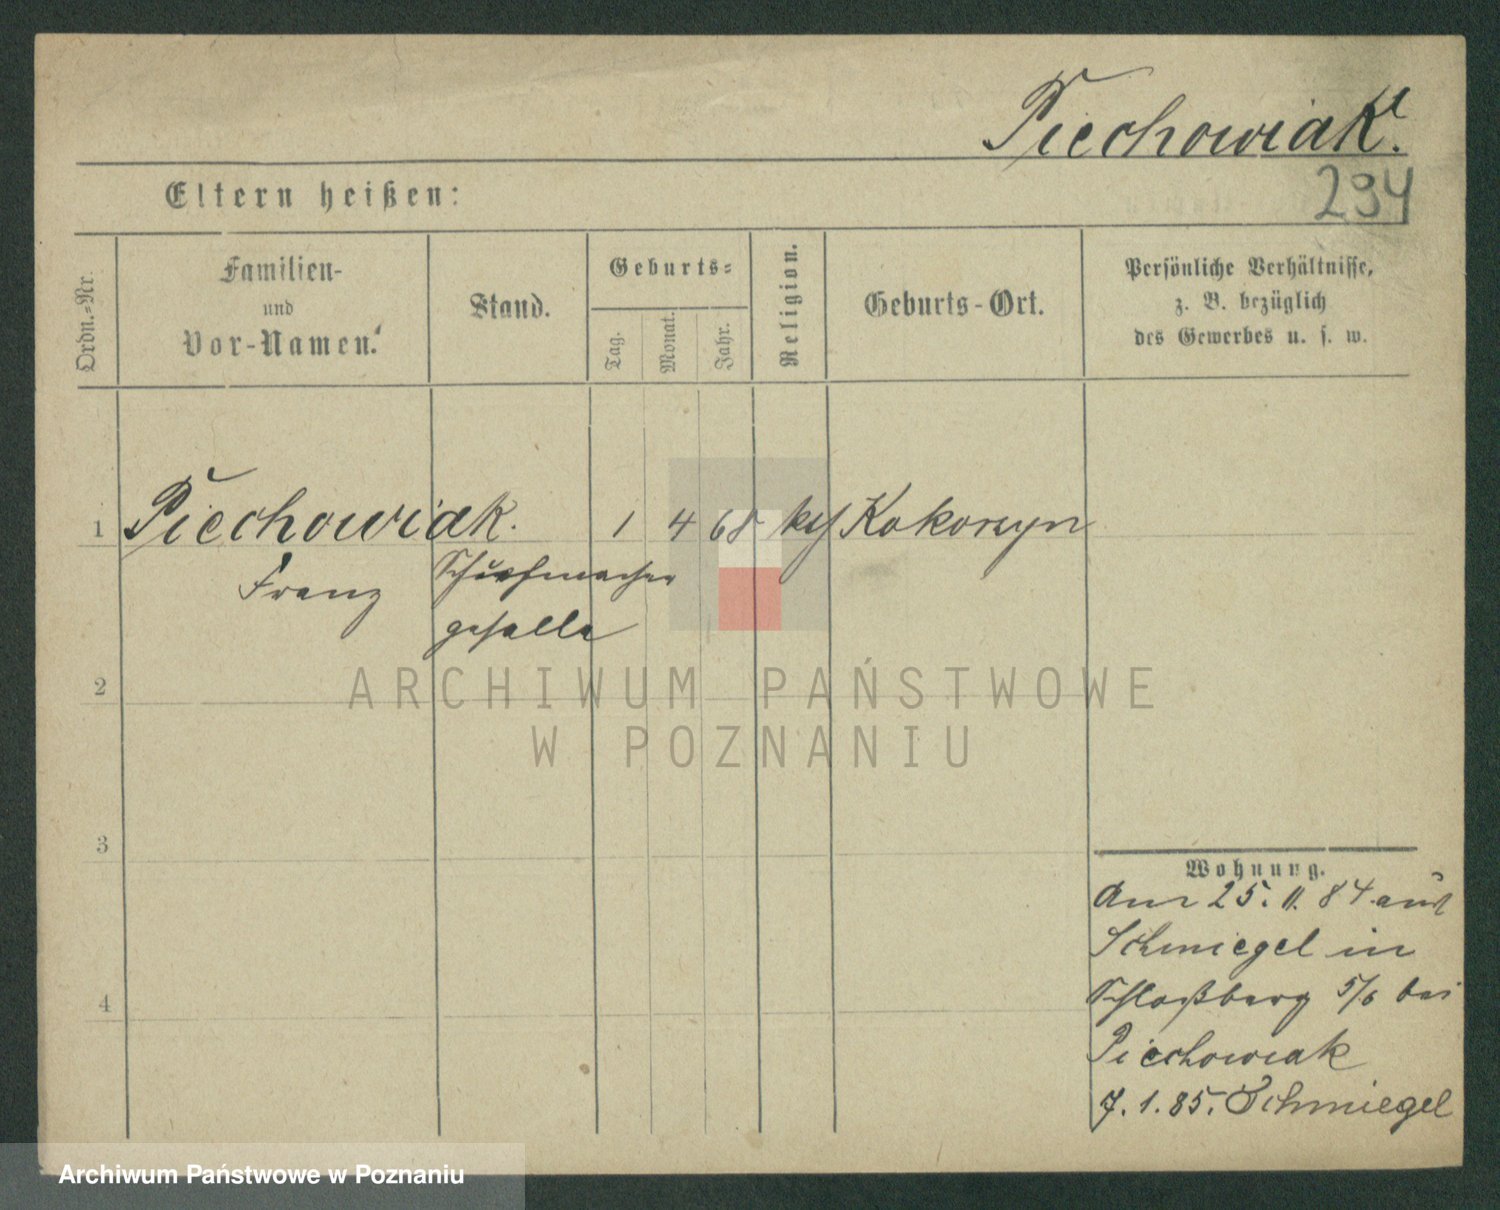 Piechowiak.
Eltern heißen:
294
Ordn.-Nr.
Familien-
und
Vor-Namen.
Stand.
Geburts-
Tag.
Monat.
Jahr.
Religion.
Geburts-Ort.
Persönliche Verhältnisse,
z. B. bezüglich
des Gewerbes u. s. w.
1 Piechowiak. 1 4 68 kth Kokorzyn
Franz Schuhmacher
geselle
2
ARCHIWUM PAŃSTWOWE
W POZNANIU
3
Wohnung.
Am 25. 11. 84 aus
Schmiegel in
4 Schloßberg 5/6 bei
Piechowiak
7. 1. 85. Schmiegel
Archiwum Państwowe w Poznaniu